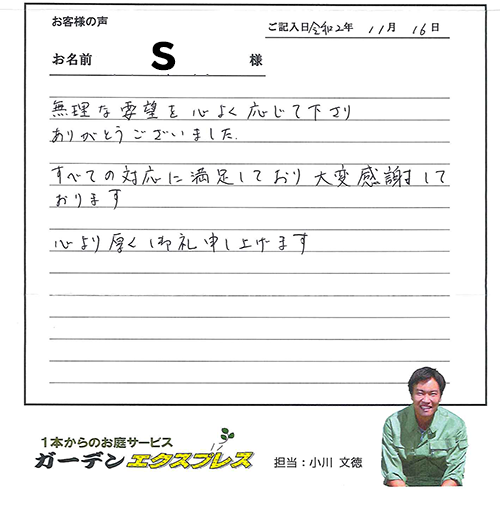 お客様の声
ご記入日 令和2年 11月 16日
お名前 S 様
無理な要望を心よく応じて下さり
ありがとうございました.
すべての対応に満足しており大変感謝して
おります
心より厚く御礼申し上げます
1本からのお庭サービス
ガーデンエクスプレス
担当:小川 文徳